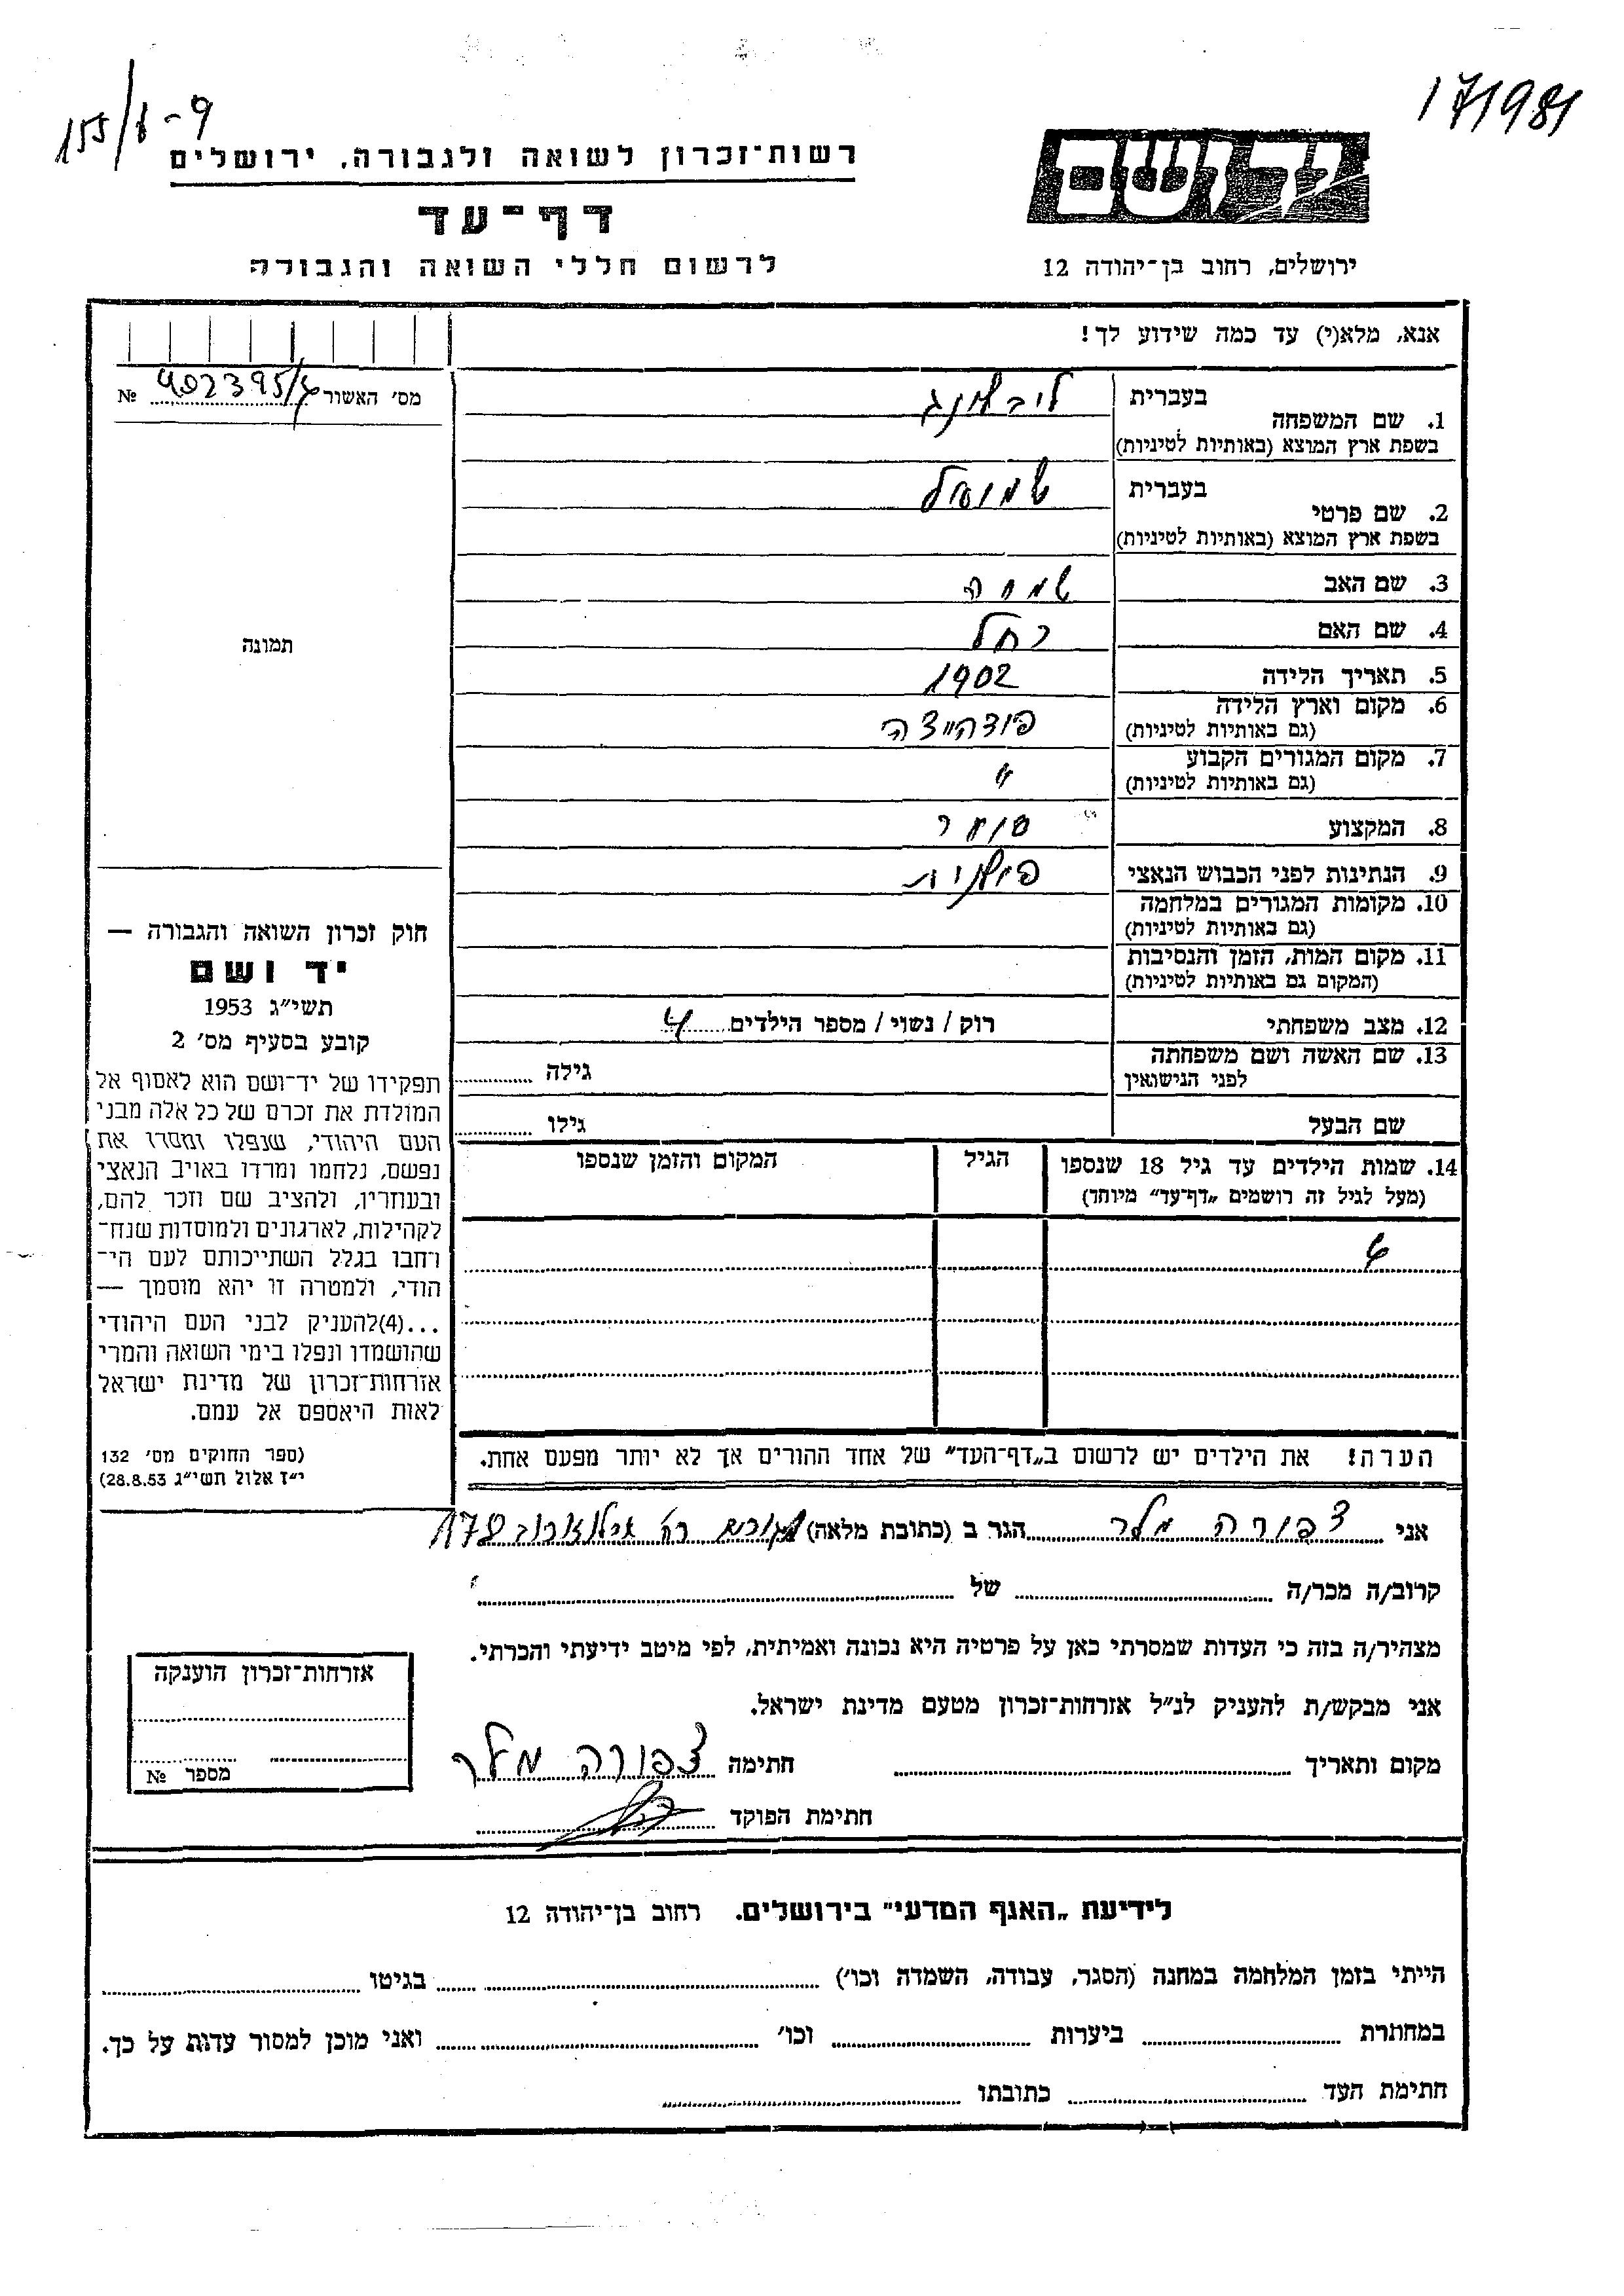 155/8-9
171981
רשות־זכרון לשואה ולגבורה, ירושלים
דף־עד
לרשום חללי השואה והגבורה
יד ושם
ירושלים, רחוב בן־יהודה 12
אנא, מלא(י) עד כמה שידוע לך!
מס׳ האשור 402395/ № 
1. שם המשפחה
בעברית
בשפת ארץ המוצא (באותיות לטיניות)
2. שם פרטי
בעברית שמואל
בשפת ארץ המוצא (באותיות לטיניות)
3. שם האב שמחה
4. שם האם רחל
5. תאריך הלידה 1902
6. מקום וארץ הלידה פודהייצה
(גם באותיות לטיניות)
7. מקום המגורים הקבוע "
(גם באותיות לטיניות)
8. המקצוע סוחר
9. הנתינות לפני הכבוש הנאצי פולנית
10. מקומות המגורים במלחמה
(גם באותיות לטיניות)
11. מקום המות, הזמן והנסיבות
(המקום גם באותיות לטיניות)
12. מצב משפחתי רוק / נשוי / מספר הילדים 4
13. שם האשה ושם משפחתה
לפני הנישואין גילה
שם הבעל גילו
14. שמות הילדים עד גיל 18 שנספו הגיל המקום והזמן שנספו
(מעל לגיל זה רושמים „דף־עד” מיוחד)
הערה! את הילדים יש לרשום ב„דף־העד” של אחד ההורים אך לא יותר מפעם אחת.
תמונה
חוק זכרון השואה והגבורה —
יד ושם
תשי״ג 1953
קובע בסעיף מס׳ 2
תפקידו של יד־ושם הוא לאסוף אל
המולדת את זכרם של כל אלה מבני
העם היהודי, שנפלו ומסרו את
נפשם, נלחמו ומרדו באויב הנאצי
ובעוזריו, ולהציב שם וזכר להם,
לקהילות, לארגונים ולמוסדות שנח־
רחבו בגלל השתייכותם לעם הי־
הודי, ולמטרה זו יהא מוסמך —
...(4)להעניק לבני העם היהודי
שהושמדו ונפלו בימי השואה והמרי
אזרחות־זכרון של מדינת ישראל
לאות היאספם אל עמם.
(ספר החוקים מס׳ 132
י״ז אלול תשי״ג 28.8.53)
אני צפורה מלר הגר ב (כתובת מלאה) רח׳ ארלוזורוב 178
קרוב/ה מכר/ה של
מצהיר/ה בזה כי העדות שמסרתי כאן על פרטיה היא נכונה ואמיתית, לפי מיטב ידיעתי והכרתי.
אני מבקש/ת להעניק לנ״ל אזרחות־זכרון מטעם מדינת ישראל.
מקום ותאריך חתימה צפורה מלר
חתימת הפוקד
אזרחות־זכרון הוענקה
מספר №
לידיעת „האגף המדעי” בירושלים. רחוב בן־יהודה 12
הייתי בזמן המלחמה במחנה (הסגר, עבודה, השמדה וכו׳) בגיטו
במחתרת ביערות וכו׳ ואני מוכן למסור עדות על כך.
חתימת העד כתובתו